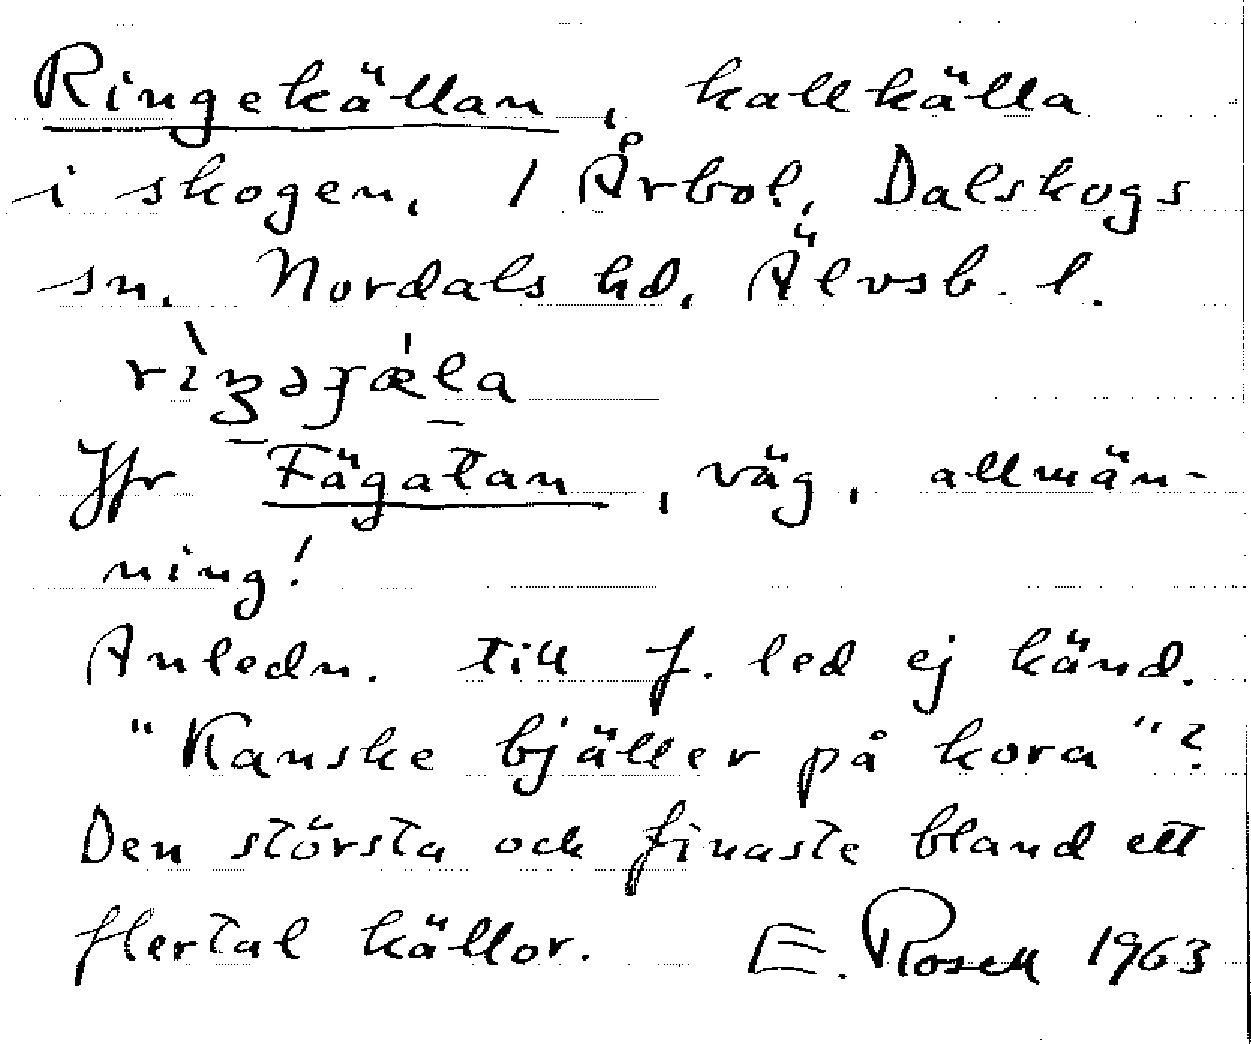 Ringekällan, kallkälla
i skogen, 1 Årbol, Dalskogs
sn, Nordals hd, Älvsb. l.
Jfr Fägatan, väg, allmän-
ning!
Anledn. till f. led ej känd.
"Kanske bjäller på kora"?
Den största och finaste bland ett
flertal källor. E. Rosell 1963